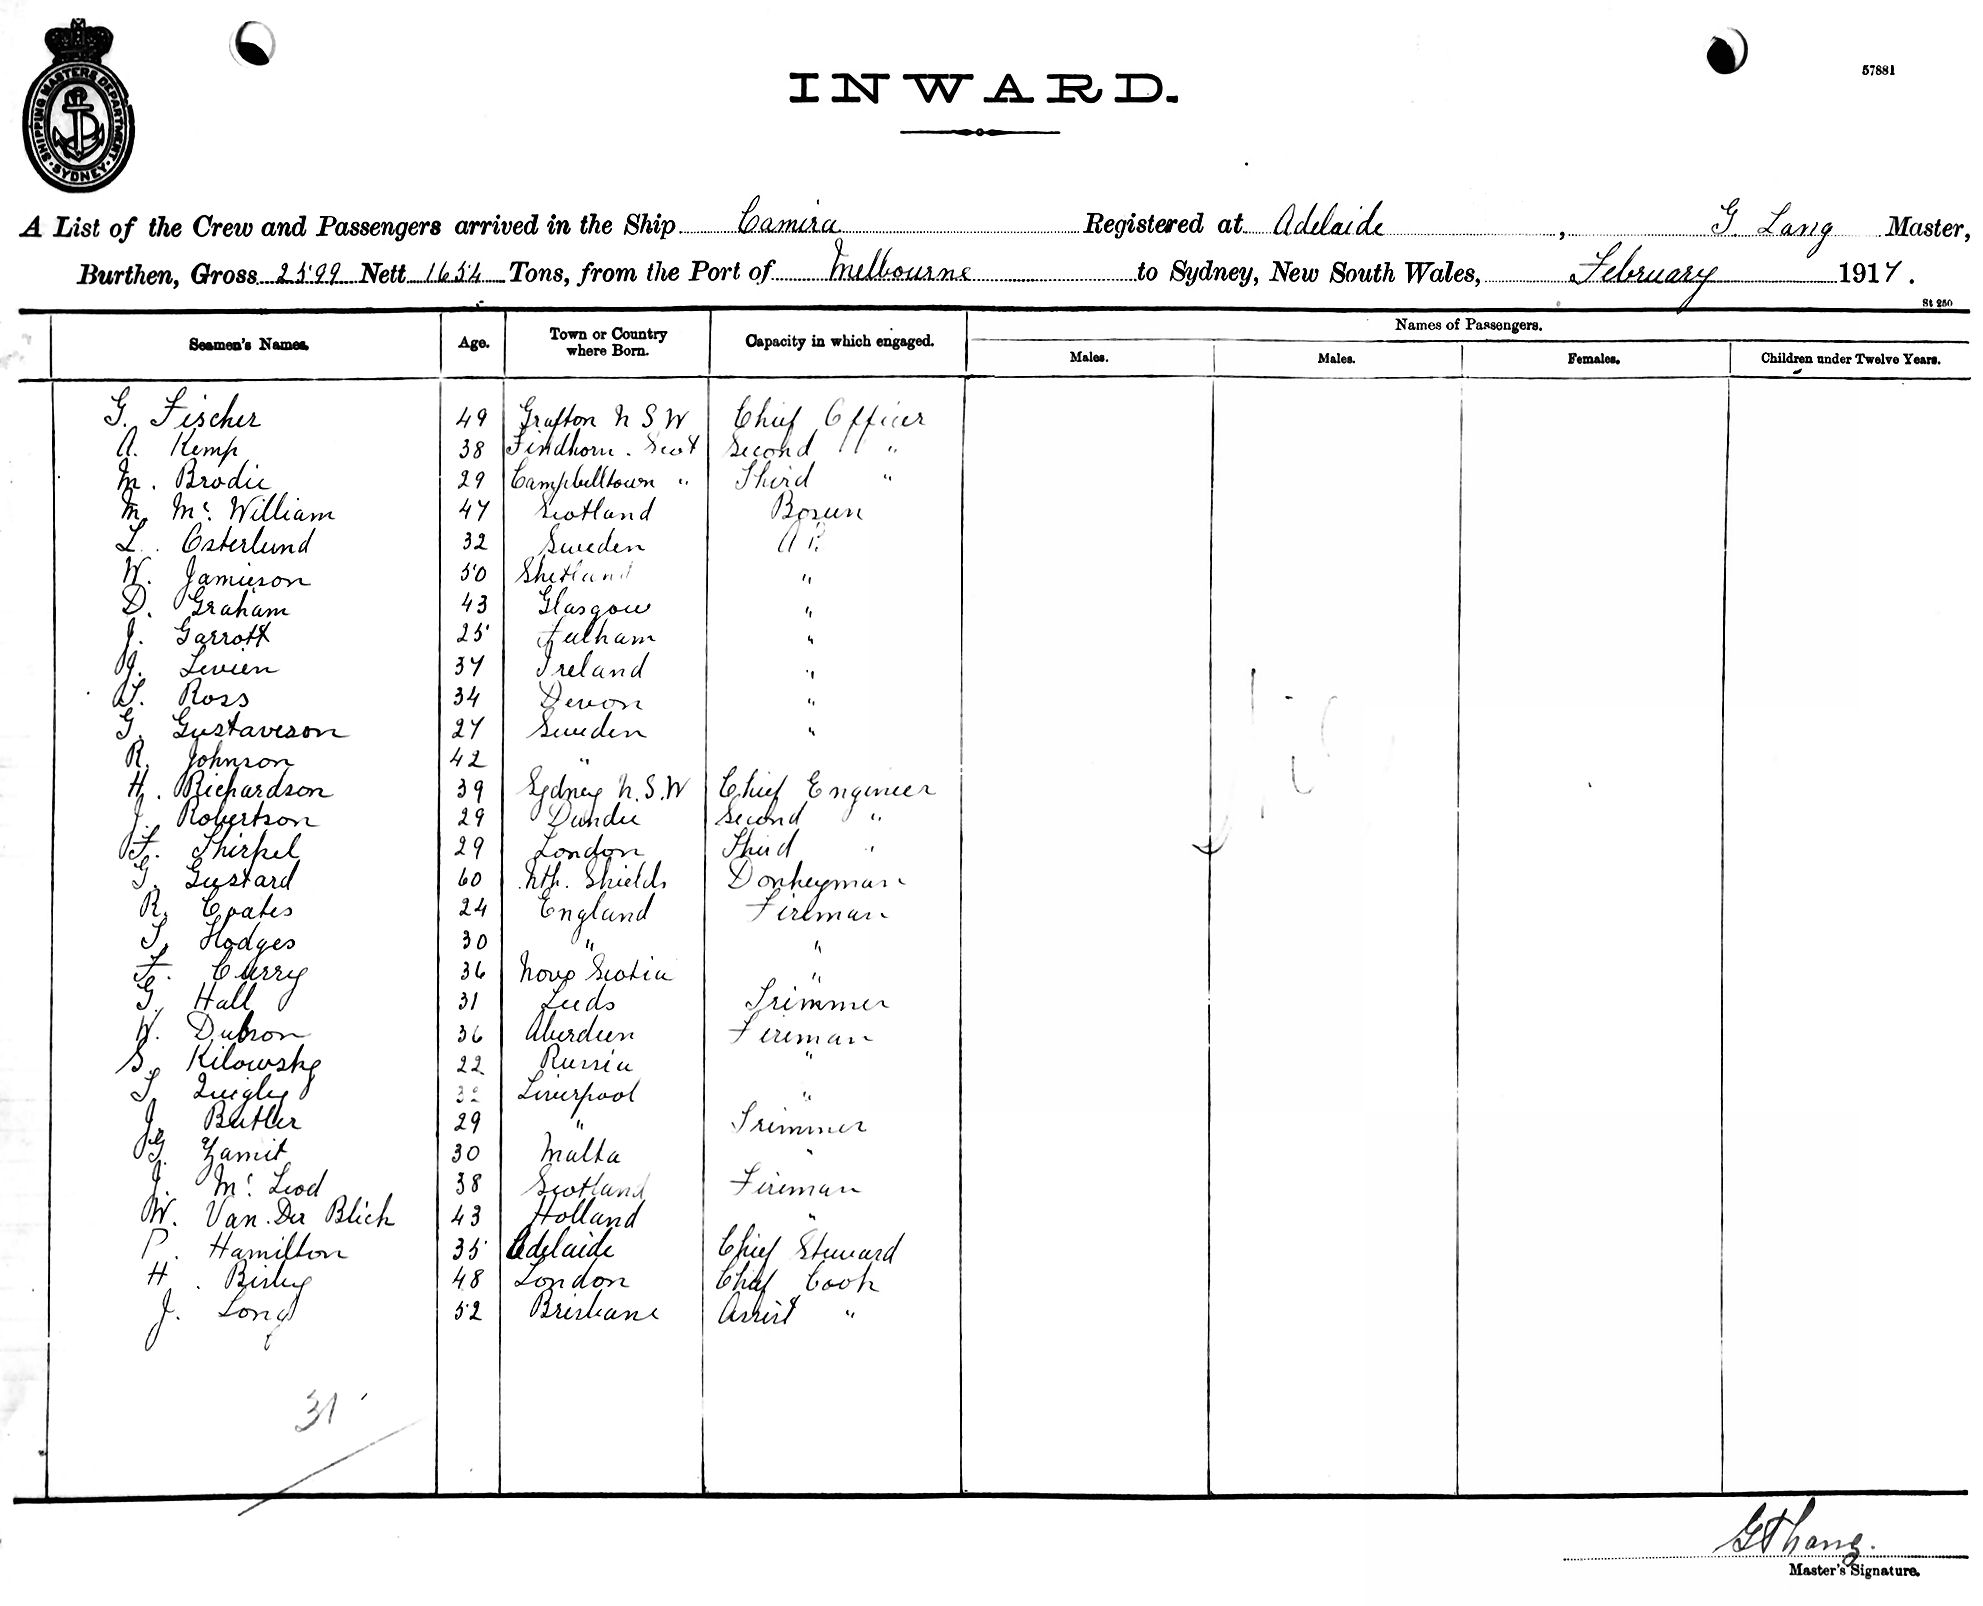 SHIPPING MASTERS DEPARTMENT. SYDNEY
57881
INWARD.
A List of the Crew and Passengers arrived in the Ship Camira Registered at Adelaide, G. Lang Master,
Burthen, Gross 2599 Nett 1654 Tons, from the Port of Melbourne to Sydney, New South Wales, February 1917.
St 250
Seamen's Names. Age. Town or Country where Born. Capacity in which engaged. Names of Passengers.
Males. Males. Females. Children under Twelve Years.
G. Fischer 49 Grafton N S W Chief Officer
A. Kemp 38 Findhorn. Scot Second "
M. Brodie 29 Campbelltown " Third "
M. Mc. William 47 Scotland Bosun
L. Osterlund 32 Sweden A B.
W. Jamieson 50 Shetland "
D. Graham 43 Glasgow "
J. Garrott 25 Fulham "
J. Levien 37 Ireland "
S. Ross 34 Devon "
G. Gustaveson 27 Sweden "
R. Johnson 42 "
H. Richardson 39 Sydney N.S.W Chief Engineer
J. Robertson 29 Dundee Second "
F. Thirkel 29 London Third "
G. Gustard 60 Nth. Shields Donkeyman
R. Coates 24 England Fireman
T. Hodges 30 " "
F. Curry 36 Nova Scotia "
G. Hall 31 Leeds Trimmer
W. Dubson 36 Aberdeen Fireman
S. Kilowsky 22 Russia "
T. Quigley 32 Liverpool "
J. Butler 29 " Trimmer
G. Zamit 30 Malta "
J. Mc. Leod 38 Scotland Fireman
W. Van. Der Blick 43 Holland "
P. Hamilton 35 Adelaide Chief Steward
H. Bisley 48 London Chief Cook
J. Long 52 Brisbane Assist "
31
Master's Signature.